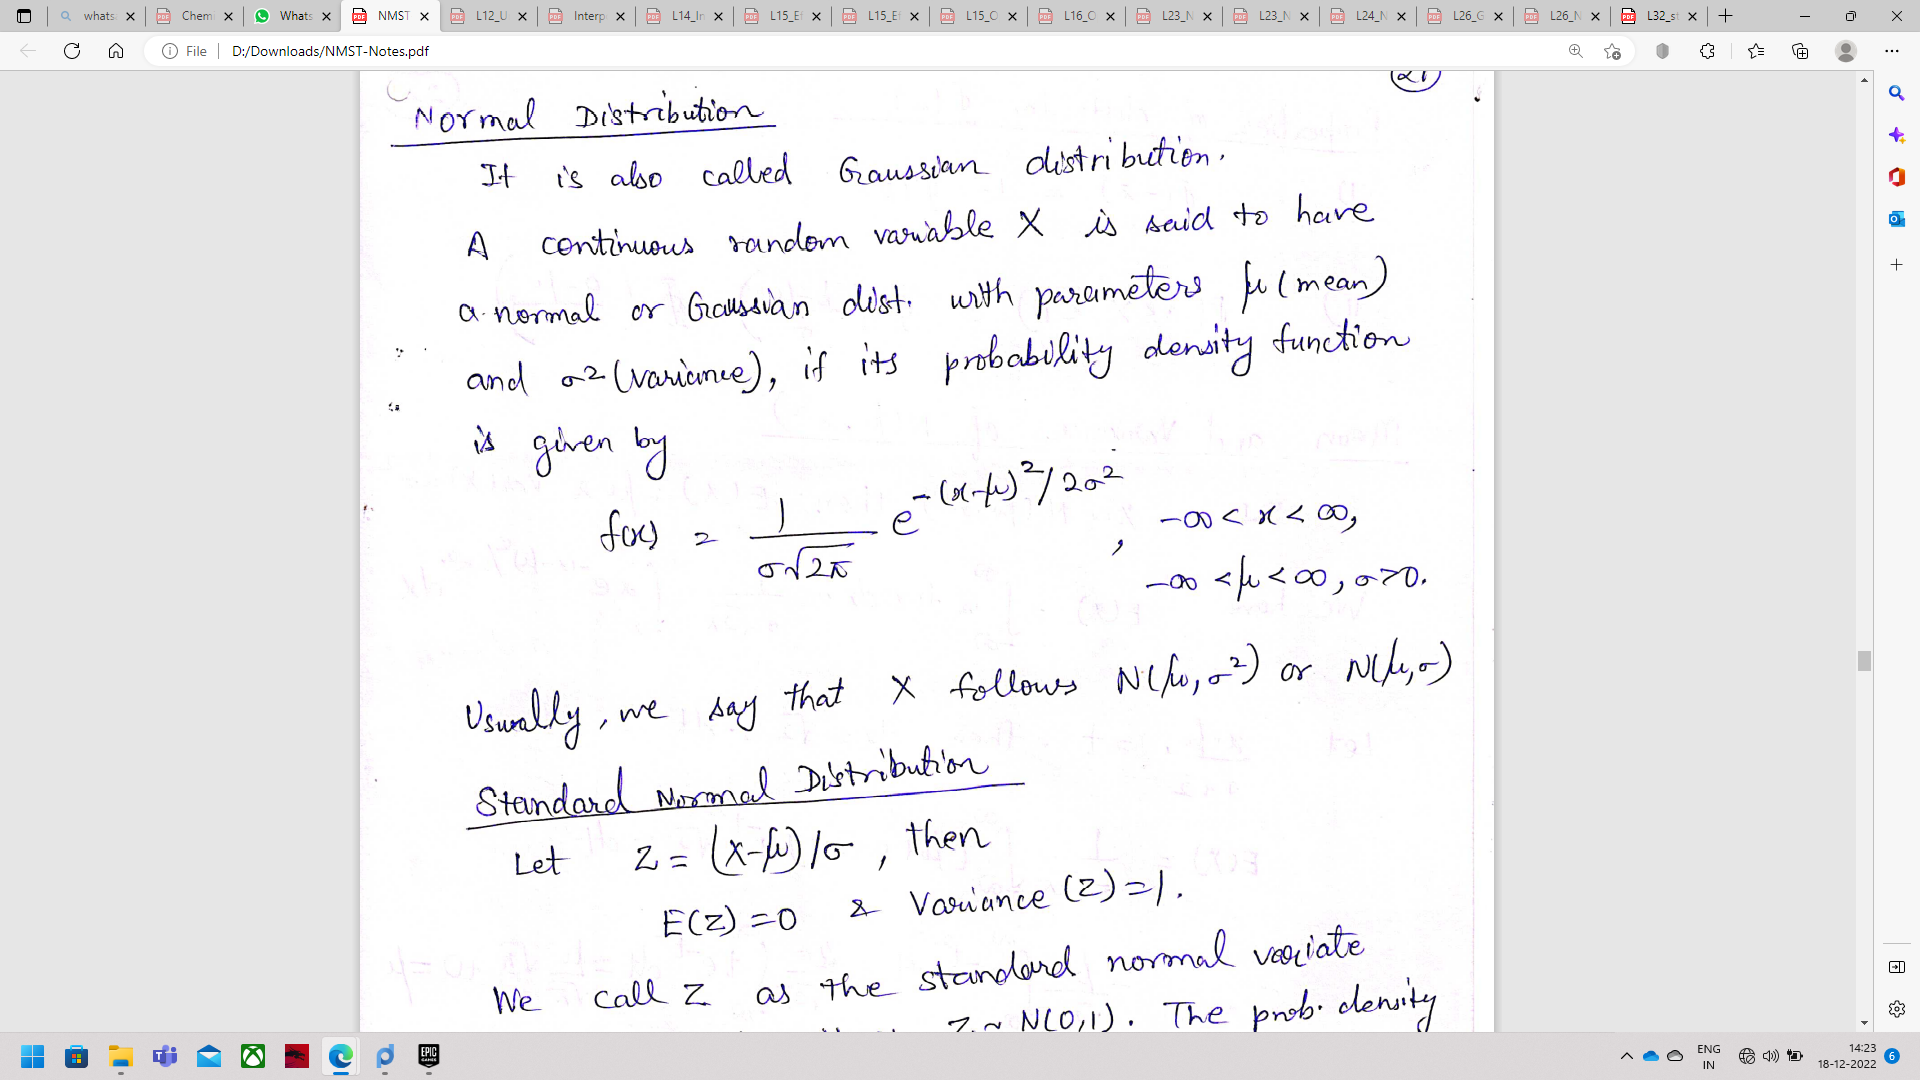 whats
Chem
Whats
NMST
L12_U
Interp
L14_In
L15_Ef
L15_Ef
L15_O
L16_O
L23_N
L23_N
L24_N
L26_G
L26_N
L32_s
File
D:/Downloads/NMST-Notes.pdf
21
Normal Distribution
It is also called Gaussian distribution.
A continuous random variable X is said to have
a normal or Gaussian dist. with parameters μ (mean)
and σ² (variance), if its probability density function
is given by
f(x) = 1/(σ√2π) e^{-(x-μ)²/2σ²}, -∞ < x < ∞,
-∞ < μ < ∞, σ>0.
Usually, we say that X follows N(μ, σ²) or N(μ, σ)
Standard Normal Distribution
Let Z = (X-μ)/σ, then
E(Z) = 0 & Variance (Z) = 1.
We call Z as the standard normal variate
Z ~ N(0,1). The prob. density
EPIC
GAMES
ENG
IN
14:23
18-12-2022
6